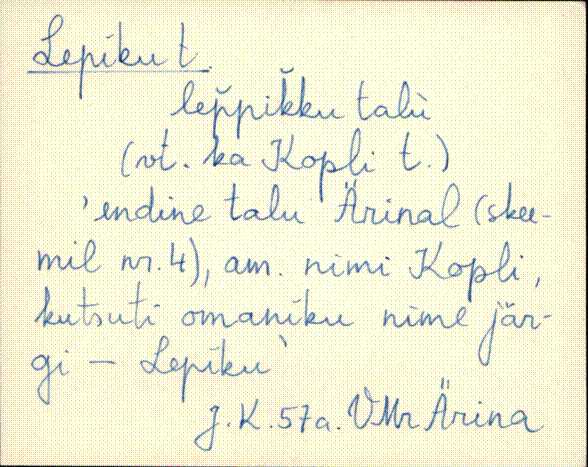 Lepiku t.
lep̆pik̆ku talù
(vt. ka Kopli t.)
'endine talu Ärinal (skee-
mil nr. 4), am. nimi Kopli,
kutsuti omaniku nime jär-
gi – Lepiku'
J.K. 57a. VMr Ärina